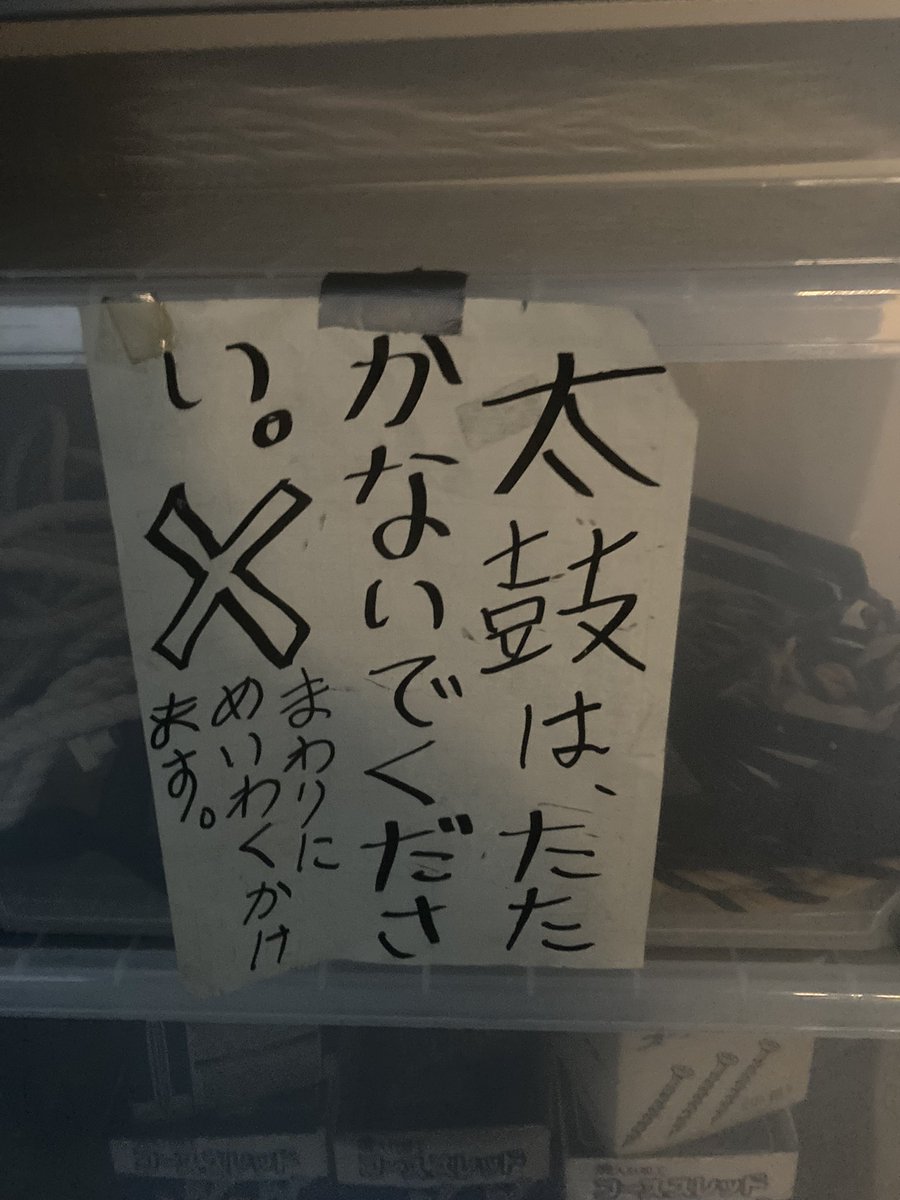 太鼓は、たた
かないでくださ
い。
まわりに
めいわくかけ
ます。